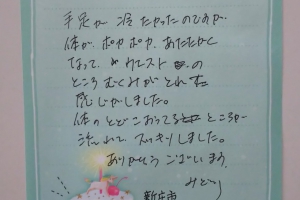 手足が 冷たかったのですが、
体が、ポカポカ、あたたかく
なって、ウエストの
ところむくみがとれた
感じがしました。
体のとどこおってるところが
流れて、スッキリしました。
ありがとうございます
新庄市 みどり